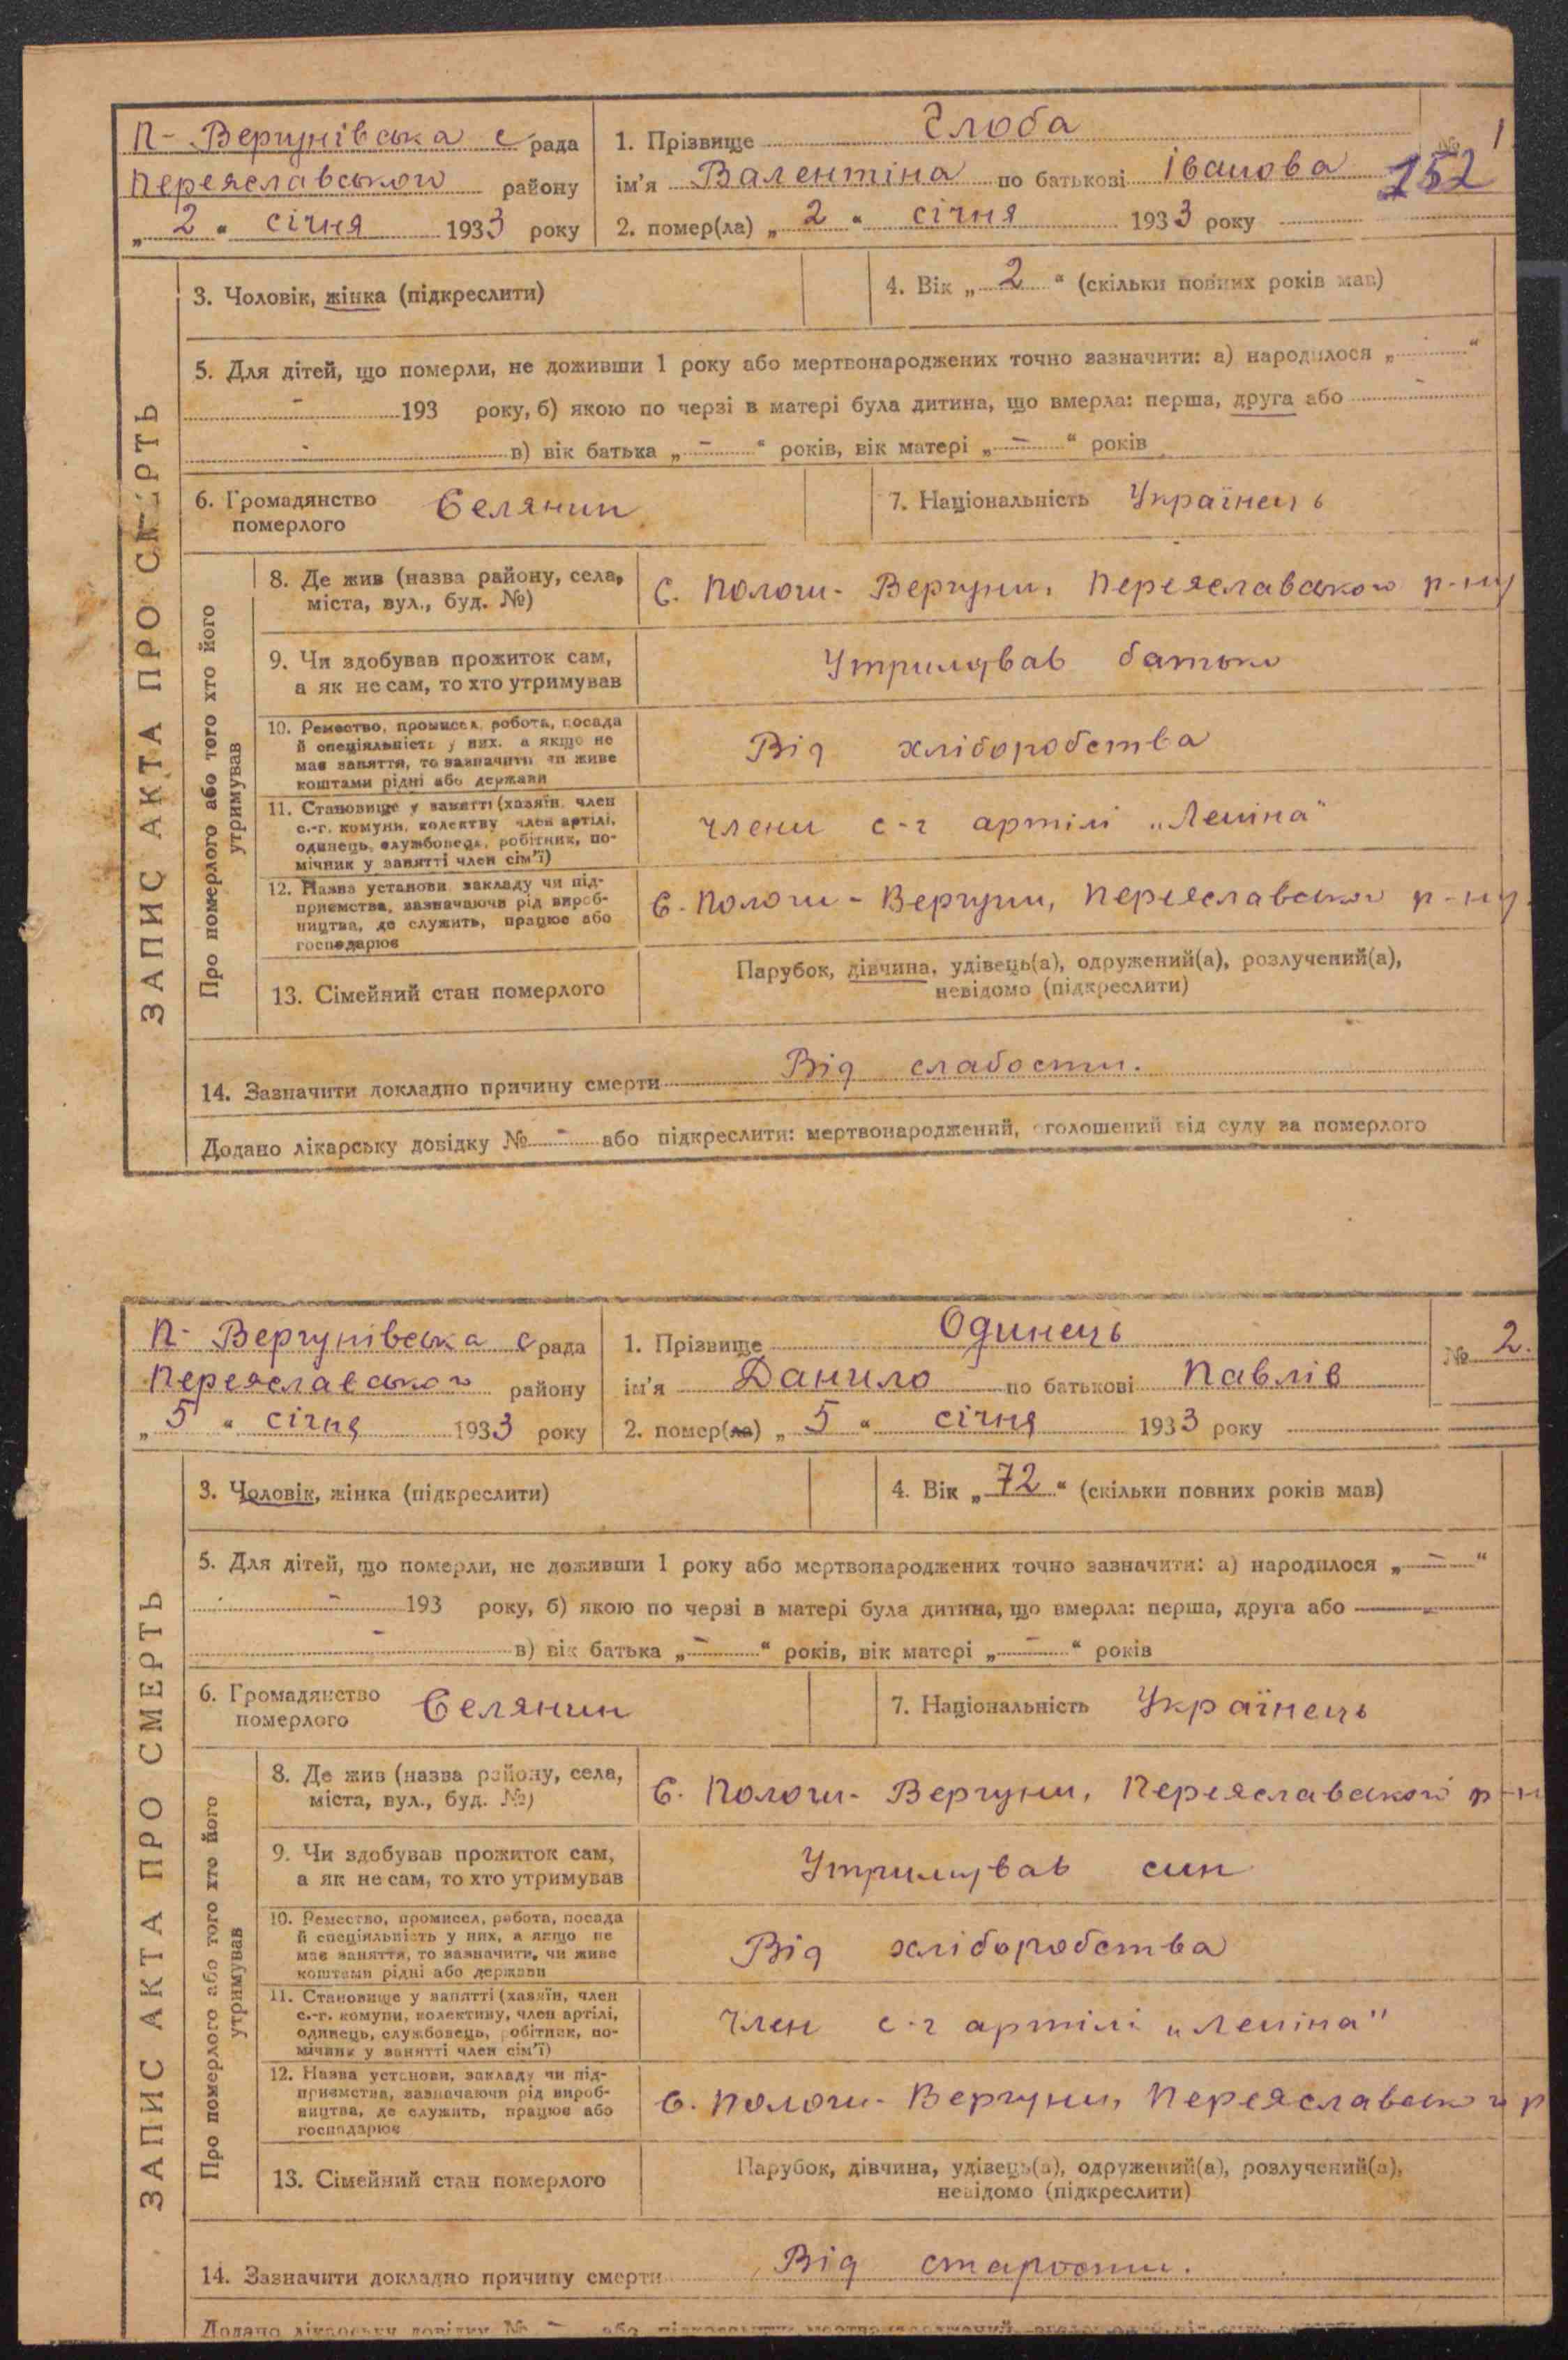 П- Вергунівська с рада
Переяславського району
„ 2 “ січня 1933 року
1. Прізвище Глоба
ім’я Валентіна по батькові Іванова
2. помер(ла) „ 2 “ січня 1933 року
№ 1
152
ЗАПИС АКТА ПРО СМЕРТЬ
3. Чоловік, жінка (підкреслити)
4. Вік „ 2 “ (скільки повних років мав)
5. Для дітей, що померли, не доживши 1 року або мертвонароджених точно зазначити: а) народилося „ - “
- 193 року, б) якою по черзі в матері була дитина, що вмерла: перша, друга або -
- в) вік батька „ - “ років, вік матері „ - “ років
6. Громадянство
померлого
Селянин
7. Національність Українець
Про померлого або того хто його
утримував
8. Де жив (назва району, села,
міста, вул., буд. №)
С. Пологи-Вергуни, Переяславського р-ну
9. Чи здобував прожиток сам,
а як не сам, то хто утримував
Утримував батько
10. Ремество, промисел, робота, посада
й спеціяльність у них, а якщо не
має заняття, то зазначити чи живе
коштами рідні або держави
Від хліборобства
11. Становище у занятті (хазяїн, член
с.-г. комуни, колективу член артілі,
одинець, службовець, робітник, по-
мічник у занятті член сім’ї)
члени с-г артілі „Леніна“
12. Назва установи, закладу чи під-
приємства, зазначаючи рід вироб-
ництва, де служить, працює або
господарює
С. Пологи-Вергуни, Переяславського р-ну.
13. Сімейний стан померлого
Парубок, дівчина, удівець(а), одружений(а), розлучений(а),
невідомо (підкреслити)
14. Зазначити докладно причину смерти Від слабости.
Додано лікарську довідку № - або підкреслити: мертвонароджений, оголошений від суду за померлого
П- Вергунівська с рада
Переяславського району
„ 5 “ січня 1933 року
1. Прізвище Одинець
ім’я Данило по батькові Павлів
2. помер(ла) „ 5 “ січня 1933 року
№ 2.
ЗАПИС АКТА ПРО СМЕРТЬ
3. Чоловік, жінка (підкреслити)
4. Вік „ 72 “ (скільки повних років мав)
5. Для дітей, що померли, не доживши 1 року або мертвонароджених точно зазначити: а) народилося „ - “
- 193 року, б) якою по черзі в матері була дитина, що вмерла: перша, друга або -
- в) вік батька „ - “ років, вік матері „ - “ років
6. Громадянство
померлого
Селянин
7. Національність Українець
Про померлого або того хто його
утримував
8. Де жив (назва району, села,
міста, вул., буд. №)
С. Пологи-Вергуни, Переяславського р-н
9. Чи здобував прожиток сам,
а як не сам, то хто утримував
Утримував син
10. Ремество, промисел, робота, посада
й спеціяльність у них, а якщо не
має заняття, то зазначити, чи живе
коштами рідні або держави
Від хліборобства
11. Становище у занятті (хазяїн, член
с.-г. комуни, колективу, член артілі,
одинець, службовець, робітник, по-
мічник у занятті член сім’ї)
Член с-г артілі „Леніна“
12. Назва установи, закладу чи під-
приємства, зазначаючи рід вироб-
ництва, де служить, працює або
господарює
С. Пологи-Вергуни, Переяславського р
13. Сімейний стан померлого
Парубок, дівчина, удівець(а), одружений(а), розлучений(а),
невідомо (підкреслити)
14. Зазначити докладно причину смерти Від старости.
Додано лікарську довідку № - або підкреслити: мертвонароджений,